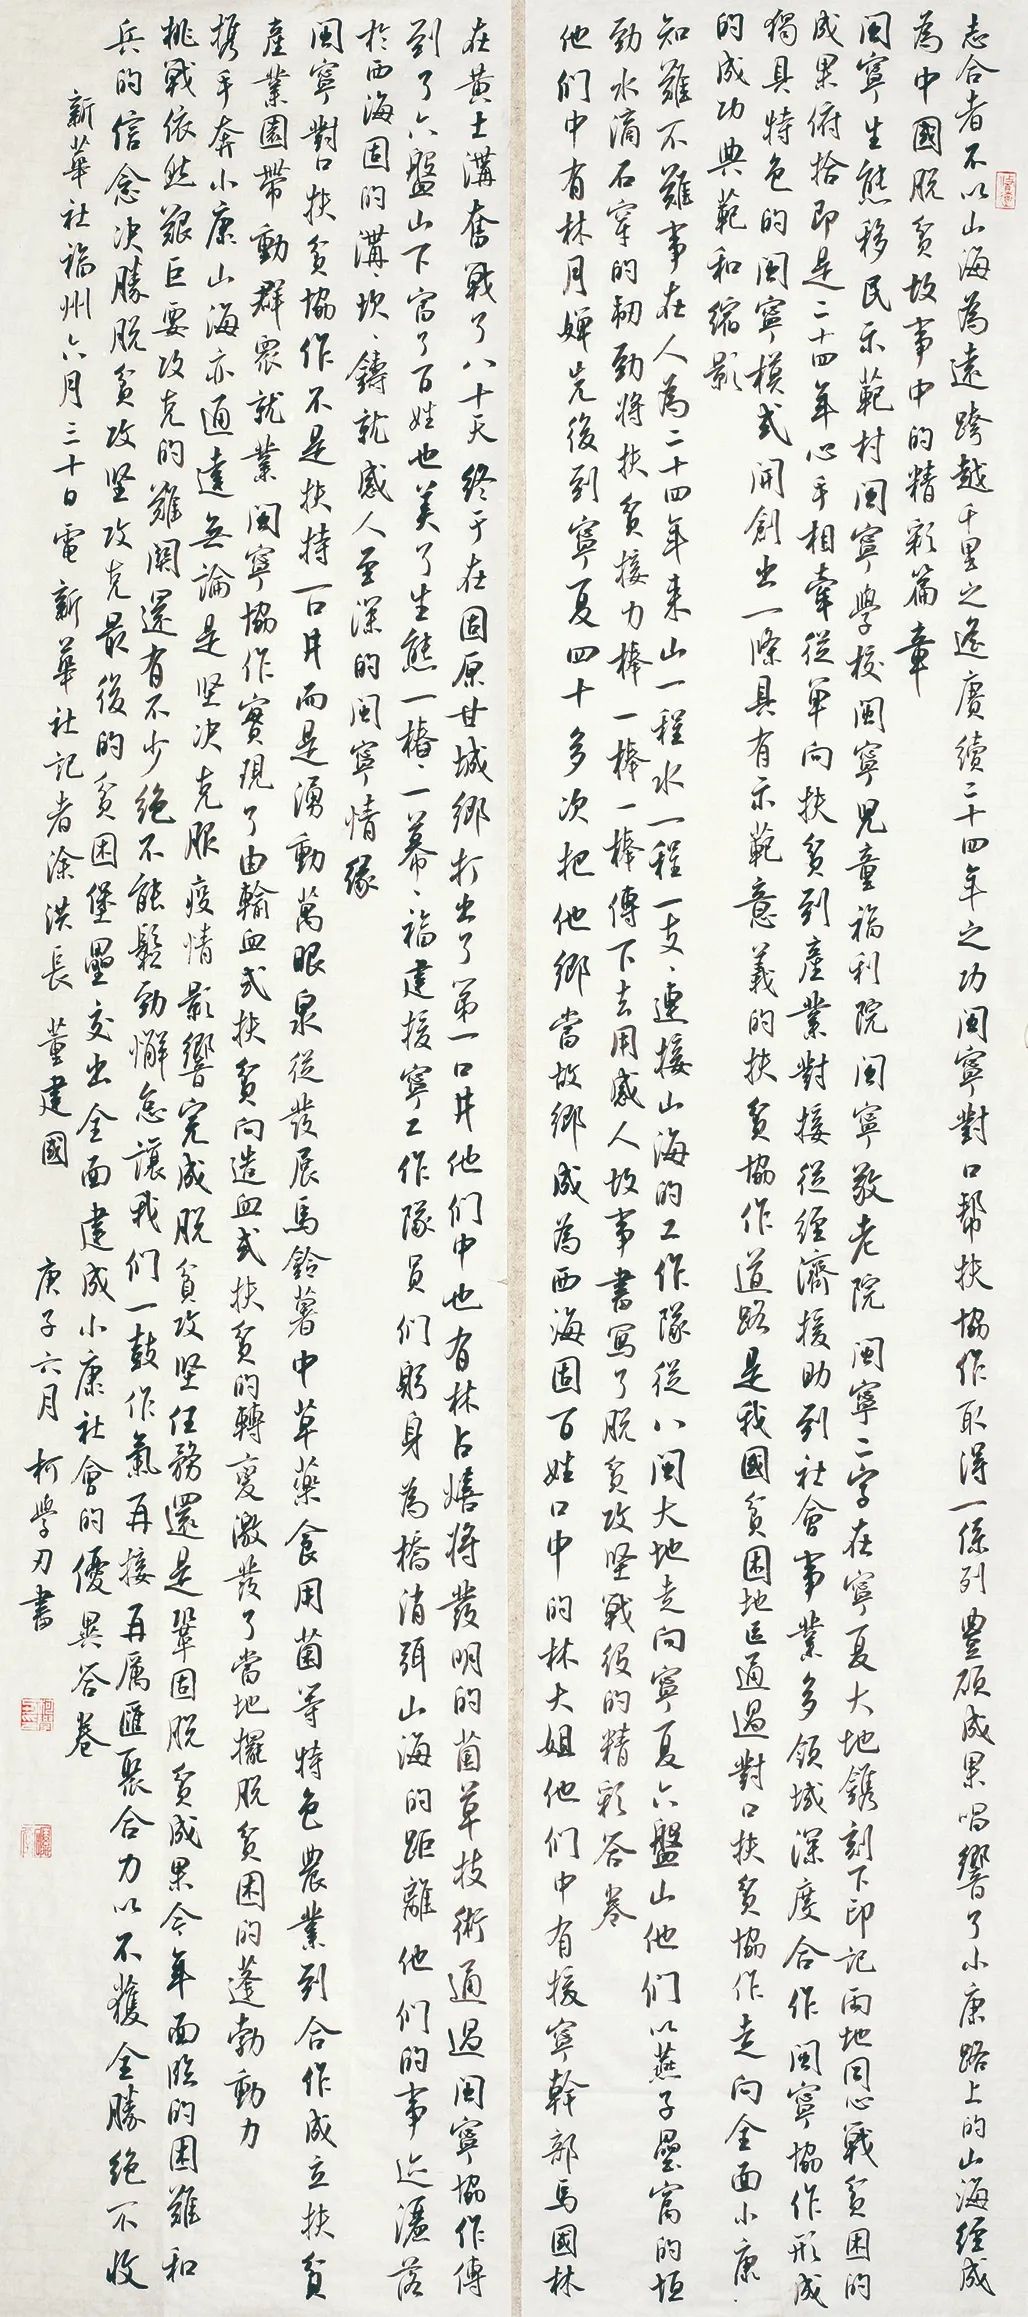 志合者不以山海為遠跨越千里之遙賡續二十四年之功閩寧對口幫扶協作取得一係列豐碩成果唱響了小康路上的山海經成
為中國脫貧故事中的精彩篇章
閩寧生態移民示範村閩寧學校閩寧兒童福利院閩寧敬老院閩寧二字在寧夏大地鐫刻下印記兩地同心戰貧困的
成果俯拾即是二十四年心手相牽從單向扶貧到產業對接從經濟援助到社會事業多領域深度合作閩寧協作形成
獨具特色的閩寧模式開創出一條具有示範意義的扶貧協作道路是我國貧困地區通過對口扶貧協作走向全面小康
的成功典範和縮影
知難不難事在人為二十四年來山一程水一程一支、連接山海的工作隊從八閩大地走向寧夏六盤山他們以燕子壘窩的恆
勁水滴石穿的韌勁將扶貧接力棒一棒一棒傳下去用感人故事書寫了脫貧攻堅戰役的精彩答卷
他們中有林月嬋先後到寧夏四十多次把他鄉當故鄉成為西海固百姓口中的林大姐他們中有援寧幹部馬國林
在黃土溝奮戰了八十天終于在固原甘城鄉打出了第一口井他們中也有林占熺將發明的菌草技術通過閩寧協作傳
到了六盤山下富了百姓也美了生態一樁、一幕、福建援寧工作隊員們躬身為橋消弭山海的距離他們的事迹灑落
於西海固的溝、坎、鑄就感人至深的閩寧情緣
閩寧對口扶貧協作不是扶持一口井而是湧動萬眼泉從發展馬鈴薯中草藥食用菌等特色農業到合作成立扶貧
產業園帶動群眾就業閩寧協作實現了由輸血式扶貧向造血式扶貧的轉變激發了當地擺脫貧困的蓬勃動力
携手奔小康山海亦通達無論是坚决克服疫情影響完成脫貧攻坚任務還是鞏固脫貧成果今年面臨的困難和
挑戰依然艱巨要攻克的難關還有不少絕不能鬆勁懈怠讓我們一鼓作氣再接再厲匯聚合力以不獲全勝絕不收
兵的信念决勝脫貧攻坚攻克最後的貧困堡壘交出全面建成小康社會的優異答卷
新華社福州六月三十日電新華社記者涂洪長 董建國 庚子六月 柯學刃書